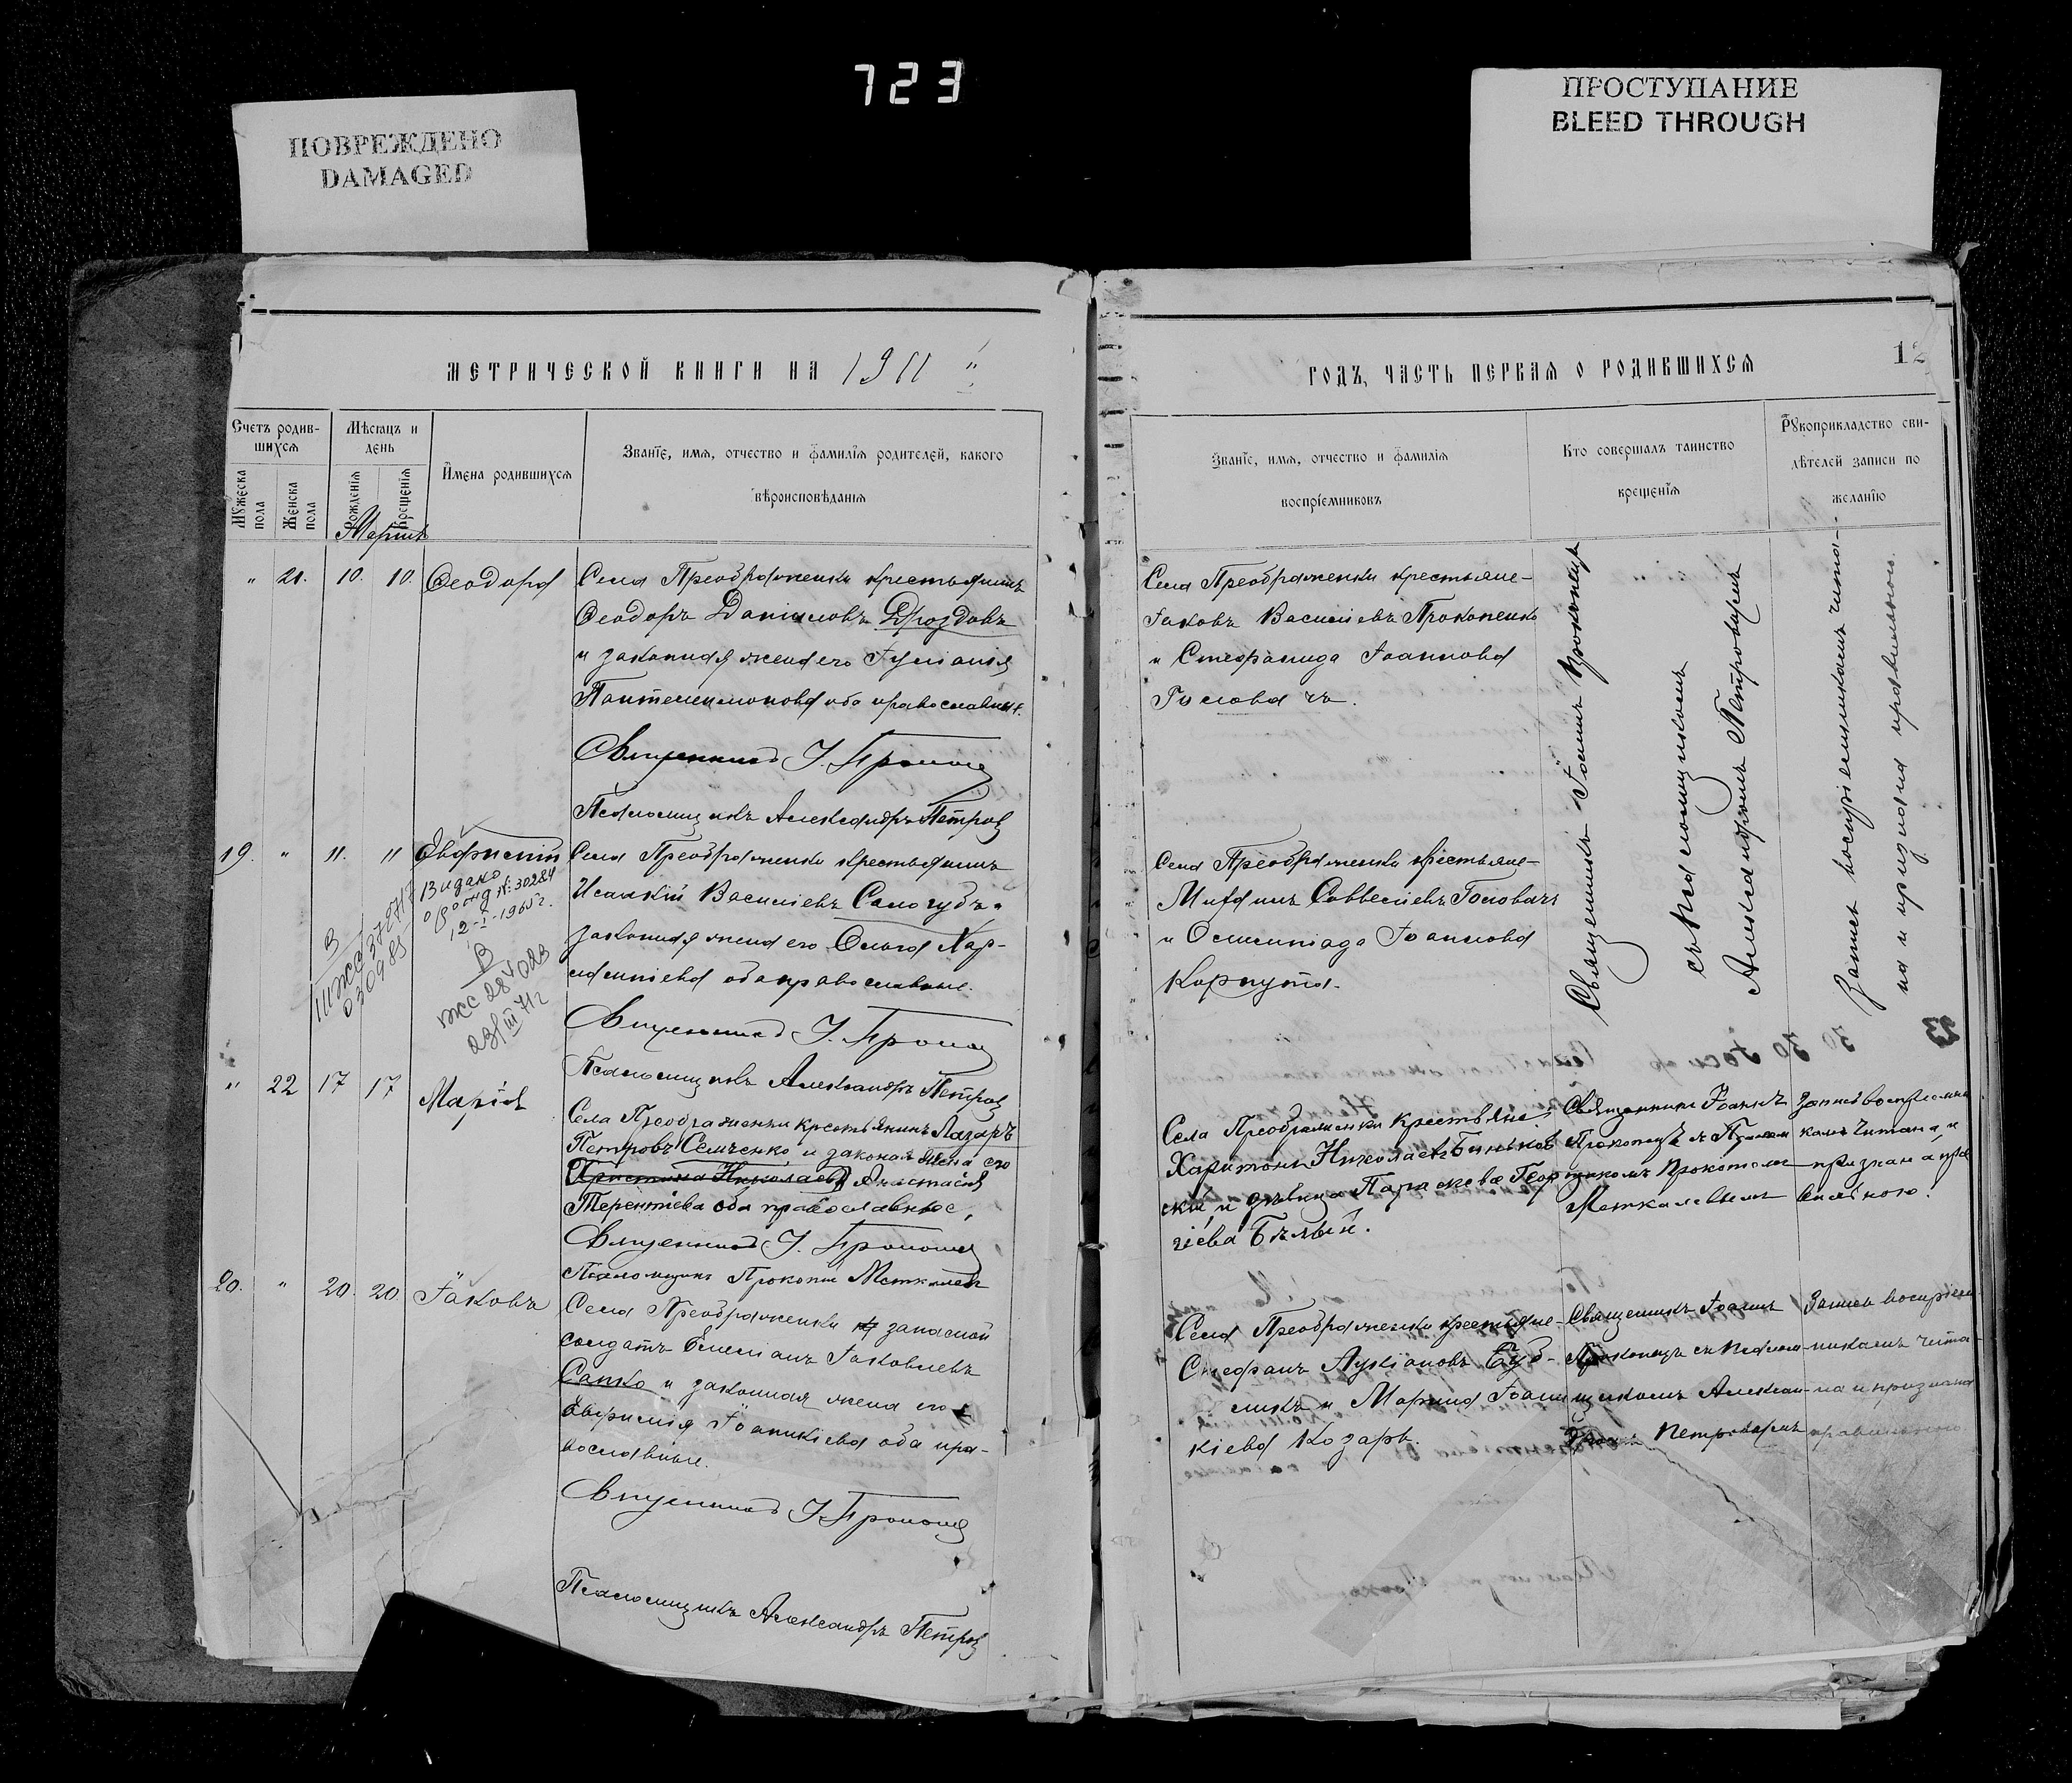 723
ПОВРЕЖДЕНО
DAMAGED
ПРОСТУПАНИЕ
BLEED THROUGH
МЕТРИЧЕСКОЙ КНИГИ НА 1911
ГОДЪ, ЧАСТЬ ПЕРВАЯ О РОДИВШИХСЯ
12
Счетъ родив-
шихся
Мужеска пола
Женска пола
Мѣсяцъ и
день
Рожденія
Крещенія
Имена родившихся
Званіе, имя, отчество и фамилія родителей, какого
вѣроисповѣданія
Званіе, имя, отчество и фамилія
воспріемниковъ
Кто совершалъ таинство
крещенія
Рукоприкладство сви-
дѣтелей записи по
желанію
Мартъ
" 21. 10. 10. Ѳеодора
Села Преображенки крестьянинъ
Ѳеодоръ Даніиловъ Дроздовъ
и законная жена его Іуліанія
Пантелеимонова оба православные.
Священникъ І. Прокопец
Псаломщикъ Александръ Петров
Села Преображенки крестьяне
Іаковъ Василіевъ Прокопенко
и Стефанида Іоаннова
Головачъ.
Священникъ Іоаннъ Прокопецъ
съ псаломщикомъ
Александромъ Петровымъ
Запись воспріемникамъ чита-
на и признана правильною.
19. " 11. 11 Евфимій
Видано
12-I-1965г.
В
В
23/III 71г
Села Преображенки крестьянинъ
Исаакій Василіевъ Сологубъ и
законная жена его Ольга Хар-
лампіева оба православные.
Священникъ І. Прокопец
Псаломщикъ Александръ Петров
Села Преображенки крестьяне
Савватіевъ Головачъ
и Іоаннова
Корпута.
" 22 17 17 Марія
Села Преображенки крестьянинъ Лазаръ
Петровъ Семченко и законая жена его
Христина Николаева Анастасія
Терентіева оба православные,
Священникъ І. Прокопец
Псаломщикъ Прокопій
Села Преображенки крестьяне
Харитонъ Николаевъ
и дѣвица Параскева Геор
гіева Бѣлый.
Священникъ Іоаннъ
Прокопецъ съ Псалом
щикомъ Прокопіемъ
Запись воспріемни
камъ читана, и
признана пра
вильною.
20. " 20. 20. Іаковъ
Села Преображенки запасной
солдатъ Емеліанъ Іаковлевъ
Сапко и законная жена его
Евфимія Іоаникіева оба пра-
вославные.
Священникъ І. Прокопец
Псаломщикъ Александръ Петров
Села Преображенки крестьяне
Стефанъ Лукіановъ
и Марина Іоани
кіева Козаръ.
Священникъ Іоаннъ
Прокопецъ съ Псалом
щикомъ Алексан
дромъ Петровымъ
Запись воспріем
никамъ чита
на и признана
правильною